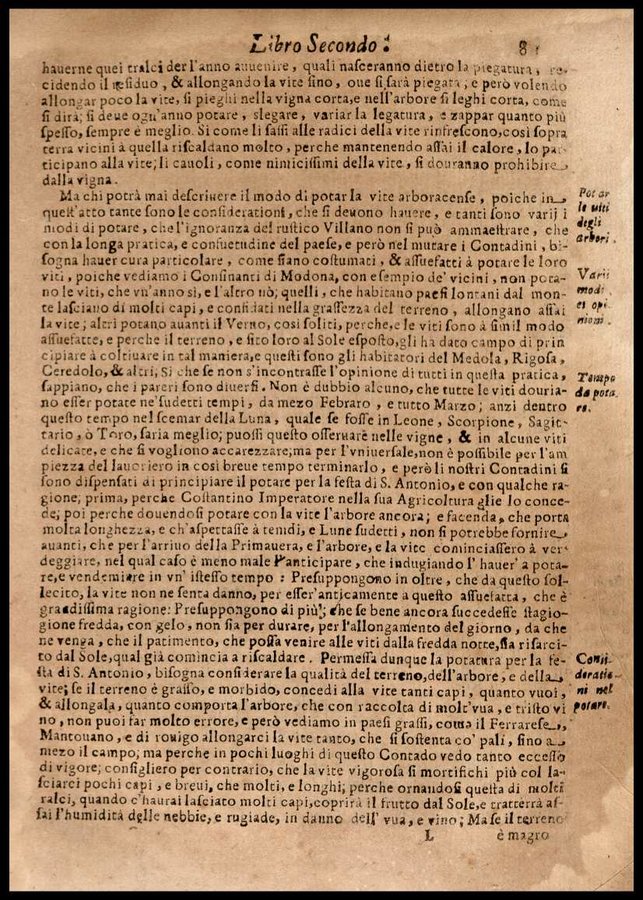 Libro Secondo.
hauerne quei tralci der l'anno auuenire, quali nasceranno dietro la piegatura, re-
cidendo il residuo, & allongando la vite sino, oue si sarà piegata, e però volendo
allongar poco la vite, si pieghi nella vigna corta, e nell'arbore si leghi corta, come
si dirà; si deue ogn'anno potare, slegare, variar la legatura, e zappar quanto più
spesso, sempre è meglio. Si come li sassi alle radici della vite rinfrescono, così sopra
terra vicini à quella riscaldano molto, perche mantenendo assai il calore, lo par-
ticipano alla vite; li cauoli, come nimicissimi della vite, si douranno prohibire
dalla vigna.
Ma chi potrà mai descriuere il modo di potar la vite arboracense, poiche in
quest'atto tante sono le considerationi, che si deuono hauere, e tanti sono varij i
modi di potare, che l'ignoranza del rustico Villano non si può ammaestrare, che
con la longa pratica, e consuetudine del paese, e però nel mutare i Contadini, bi-
sogna hauer cura particolare, come siano costumati, & assuefatti à potare le loro
viti, poiche vediamo i Confinanti di Modona, con esempio de' vicini, non pota-
no le viti, che vn'anno sì, e l'altro nò; quelli, che habitano paesi lontani dal mon-
te lasciano di molti capi, e confidati nella grassezza del terreno, allongano assai
la vite; altri potano auanti il Verno, così soliti, perche, e le viti sono à simil modo
assuefatte, e perche il terreno, e sito loro al Sole esposto, gli ha dato campo di prin
cipiare à coltiuare in tal maniera, e questi sono gli habitatori del Medola, Rigosa,
Ceredolo, & altri, Si che se non s'incontrasse l'opinione di tutti in questa pratica,
sappiano, che i pareri sono diuersi. Non è dubbio alcuno, che tutte le viti douria-
no esser potate ne'sudetti tempi, da mezo Febraro, e tutto Marzo; anzi dentro
questo tempo nel scemar della Luna, quale se fosse in Leone, Scorpione, Sagit-
tario, ò Toro, saria meglio; puossi questo osseruare nelle vigne, & in alcune viti
delicate, e che si vogliono accarezzare; ma per l'vniuersale, non è possibile per l'am
piezza del lauoriero in così breue tempo terminarlo, e però li nostri Contadini si
sono dispensati di principiare il potare per la festa di S. Antonio, e con qualche ra-
gione; prima, perche Costantino Imperatore nella sua Agricoltura glie lo conce-
de; poi perche douendosi potare con la vite l'arbore ancora; e facenda, che porta
molta longhezza, e ch'aspettasse à temdi, e Lune sudetti, non si potrebbe fornire
auanti, che per l'arriuo della Primauera, e l'arbore, e la vite cominciassero à ver-
deggiare, nel qual caso è meno male l'anticipare, che indugiando l' hauer' a pota-
re, e vendemiare in vn' istesso tempo: Presuppongono in oltre, che da questo sol-
lecito, la vite non ne senta danno, per esser'anticamente a questo assuefatta, che è
grandissima ragione: Presuppongono di più; che se bene ancora succedesse stagio-
gione fredda, con gelo, non sia per durare, per l'allongamento del giorno, da che
ne venga, che il patimento, che possa venire alle viti dalla fredda notte, sia risarci-
to dal Sole, qual già comincia a riscaldare. Permessa dunque la potatura per la fe-
sta di S. Antonio, bisogna considerare la qualità del terreno, dell'arbore, e della
vite; se il terreno è grasso, e morbido, concedi alla vite tanti capi, quanto vuoi,
& allongala, quanto comporta l'arbore, che con raccolta di molt'vua, e tristo vi
no, non puoi far molto errore, e però vediamo in paesi grassi, como il Ferrarese,
Mantouano, e di rouigo allongarci la vite tanto, che si sostenta co' pali, sino a
mezo il campo; ma perche in pochi luoghi di questo Contado vedo tanto eccesso
di vigore; consigliero per contrario, che la vite vigorosa si mortifichi più col la-
sciarci pochi capi, e breui, che molti, e longhi; perche ornandosi questa di molti
ralci, quando c'haurai lasciato molti capi, coprirà il frutto dal Sole, e tratterrà as-
sai l'humidità delle nebbie, e rugiade, in danno dell' vua, e vino; Ma se il terreno
L è magro
Potar
le viti
degli
arbori.
Varii
modi
et opi
nioni.
Tempo
da pota
re.
Consi-
deratio-
ni nel
potare.